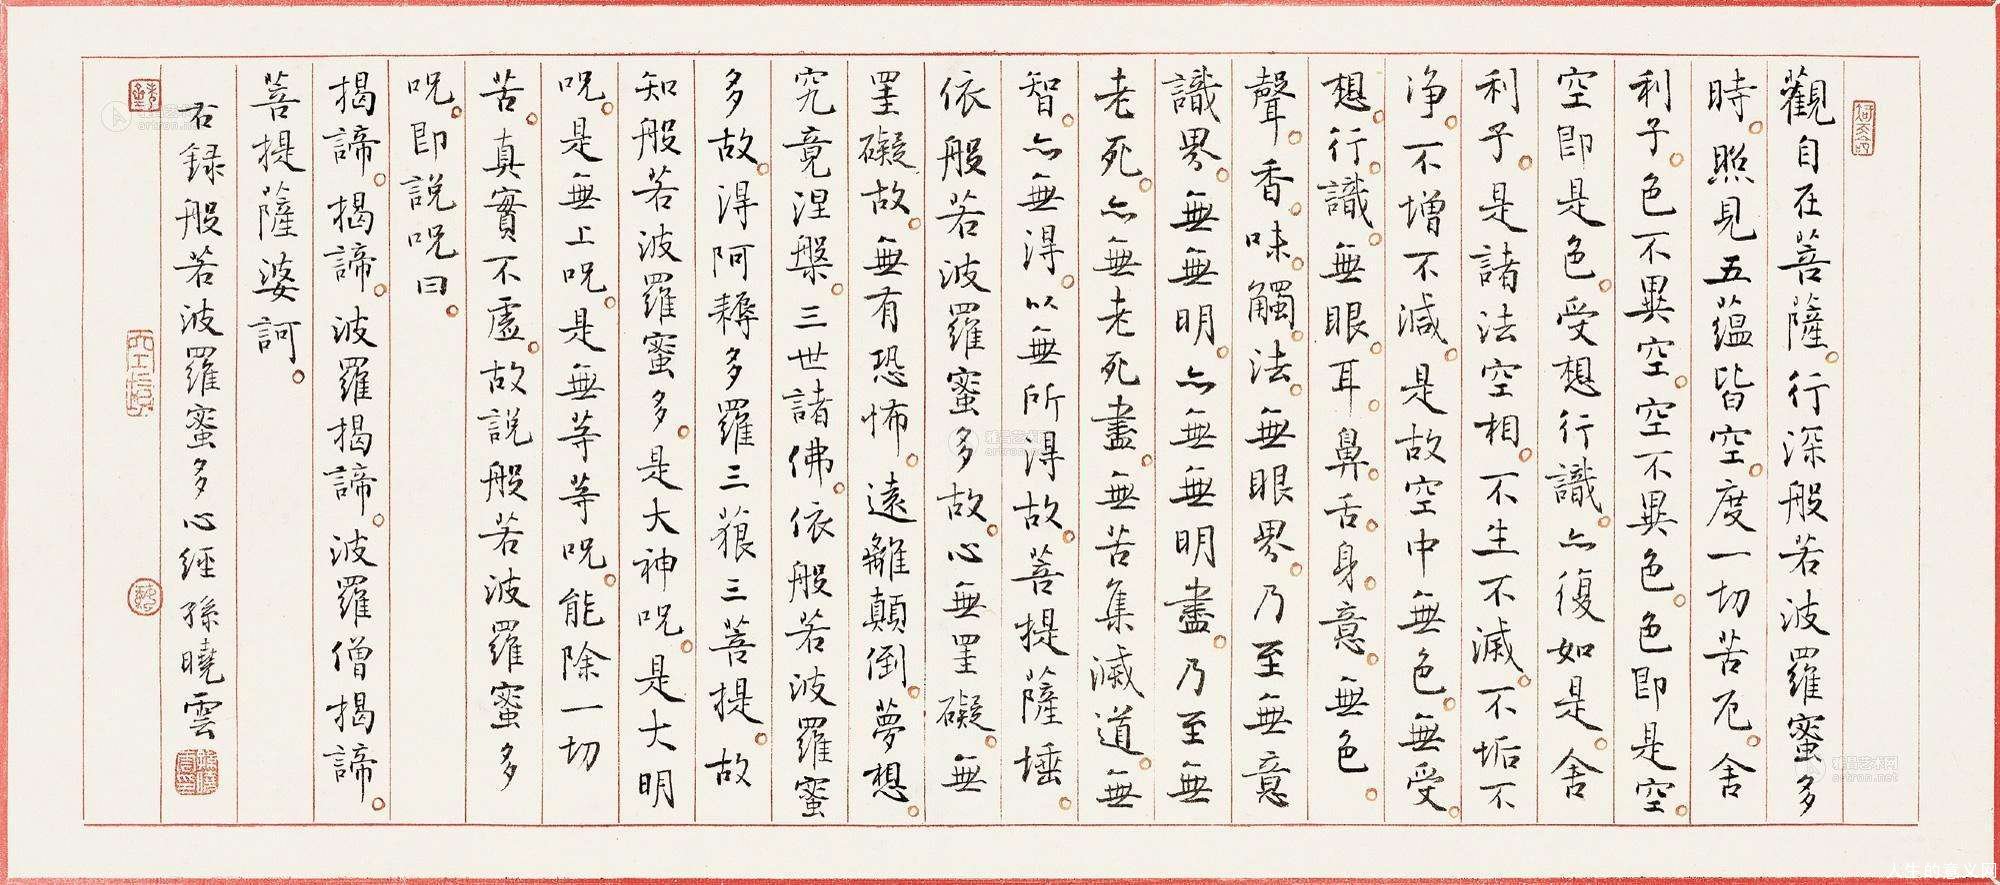 觀自在菩薩。行深般若波羅蜜多
時。照見五蘊皆空。度一切苦厄。舍
利子。色不異空。空不異色。色即是空。
空即是色。受想行識。亦復如是。舍
利子。是諸法空相。不生不滅。不垢不
淨。不增不減。是故空中無色。無受
想。行。識。無眼。耳。鼻。舌。身。意。無色。
聲。香。味。觸。法。無眼界。乃至無意
識界。無無明。亦無無明盡。乃至無
老死。亦無老死盡。無苦集滅道。無
智。亦無得。以無所得故。菩提薩埵。
依般若波羅蜜多故。心無罣礙。無
罣礙故。無有恐怖。遠離顛倒。夢想。
究竟涅槃。三世諸佛。依般若波羅蜜
多故。得阿耨多羅三藐三菩提。故
知般若波羅蜜多。是大神呪。是大明
呪。是無上呪。是無等等呪。能除一切
苦。真實不虛。故說般若波羅蜜多
呪。即說呪曰。
揭諦。揭諦。波羅揭諦。波羅僧揭諦。
菩提薩婆訶。
右録般若波羅蜜多心經孫曉雲
雅昌艺术网
artron.net
人生的意义网